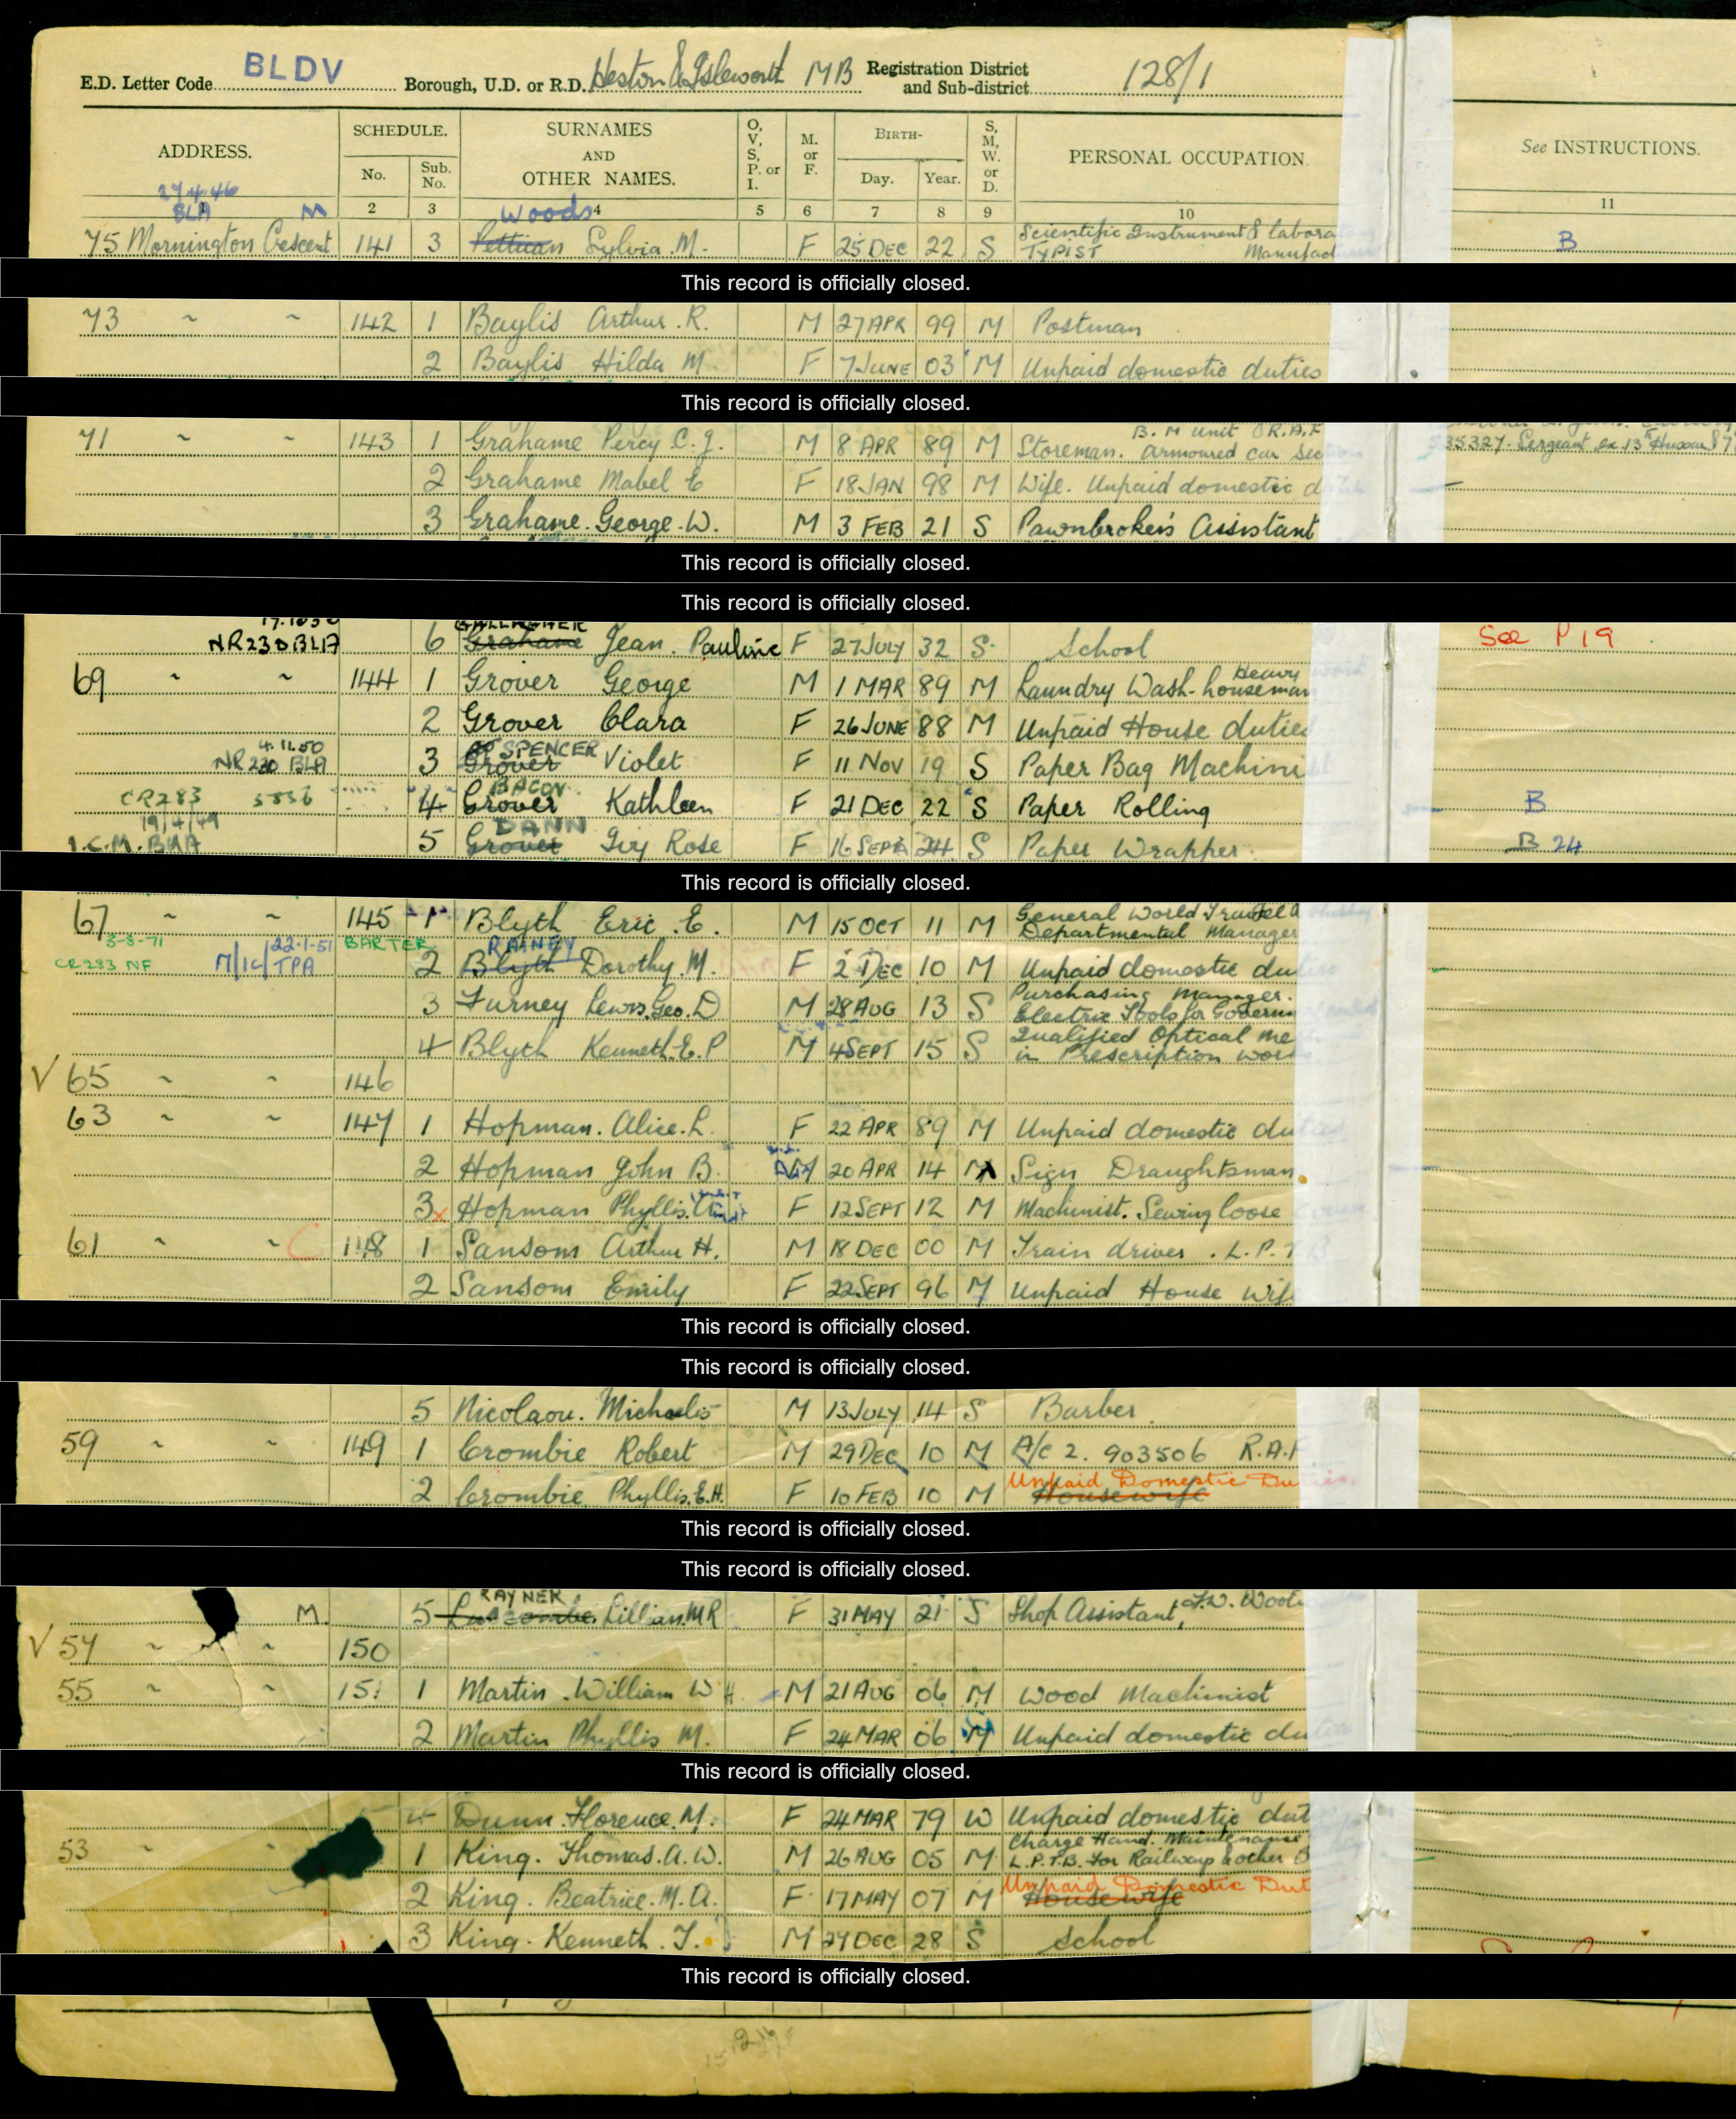 E.D. Letter Code BLDV Borough, U.D. or R.D. Heston & Isleworth MB Registration District and Sub-district 128/1
ADDRESS. SCHEDULE. SURNAMES AND OTHER NAMES. O, V, S, P. or I. M. or F. BIRTH- S, M, W. or D. PERSONAL OCCUPATION. See INSTRUCTIONS.
No. Sub. No. Day. Year.
27.4.46
BLA M 2 3 Woods 4 5 6 7 8 9 10 11
75 Mornington Crescent 141 3 Sylvia M. F 25 DEC 22 S Scientific Instrument & labora
TYPIST Manufac B
This record is officially closed.
73 ~ ~ 142 1 Baylis Arthur. R. M 27 APR 99 M Postman
2 Baylis Hilda M F 7 JUNE 03 M Unpaid domestic duties
This record is officially closed.
B. M Unit R.A.F
71 ~ ~ 143 1 Grahame Percy C. J. M 8 APR 89 M Storeman. armoured car Sec 535327. Sergeant ex 13 Hussars
2 Grahame Mabel E F 18 JAN 98 M Wife. Unpaid domestic d
3 Grahame. George. W. M 3 FEB 21 S Pawnbroker's Assistant
This record is officially closed.
This record is officially closed.
GALLAGHER
NR230 BLA 6 Grahame Jean. Pauline F 27 JULY 32 S School See P 19
Heavy
69 ~ ~ 144 1 Grover George M 1 MAR 89 M Laundry Wash-houseman
2 Grover Clara F 26 JUNE 88 M Unpaid House duties
4.11.50 SPENCER
NR 230 BLA 3 Grover Violet F 11 NOV 19 S Paper Bag Machini
BACON
CR283 4 Grover Kathleen F 21 DEC 22 S Paper Rolling B
19/4/49 DANN
5 Grover Ivy Rose F 16 SEPT 24 S Paper Wrapper B 24
This record is officially closed.
67 ~ ~ 145 1 Blyth Eric. E. M 15 OCT 11 M General World Travel A
Departmental Manager
3-8-71 22-1-51 BARTER RAINEY
CR283 NF TPA 2 Blyth Dorothy. M. F 2 DEC 10 M Unpaid domestic du
3 Furney Lewis. Geo. D M 28 AUG 13 S Purchasing Manager.
Electric Tools for Governm
4 Blyth Kenneth. E. P M 4 SEPT 15 S Qualified Optical Me
in Prescription work
V 65 ~ ~ 146
63 ~ ~ 147 1 Hopman. Alice. L. F 22 APR 89 M Unpaid domestic du
2 Hopman John B. M 20 APR 14 M Sign Draughtsman
3 x Hopman Phyllis. F 12 SEPT 12 M Machinist. Sewing loose
61 ~ ~ C 148 1 Sansom Arthur H. M 18 DEC 00 M Train driver. L.P.T B
2 Sansom Emily F 22 SEPT 96 M Unpaid House Wife
This record is officially closed.
This record is officially closed.
5 Nicolaou. Michaelis M 13 JULY 14 S Barber
59 ~ ~ 149 1 Crombie Robert M 29 DEC 10 M A/c 2. 903506 R.A.F
Unpaid Domestic Duties.
2 Crombie Phyllis. E. H. F 10 FEB 10 M Housewife
This record is officially closed.
This record is officially closed.
RAYNER
M. 5 Luscombe Lillian. M R F 31 MAY 21 S Shop Assistant, F.W. Woolw
V 57 ~ ~ 150
55 ~ ~ 151 1 Martin. William W H. M 21 AUG 06 M Wood Machinist
2 Martin Phyllis M. F 24 MAR 06 M Unpaid domestic du
This record is officially closed.
4 Dunn. Florence. M. F 24 MAR 79 W Unpaid domestic dut
53 ~ ~ 1 King. Thomas. A. W. M 26 AUG 05 M Charge Hand. Maintenance
L.P.T.B. for Railways & other
Unpaid Domestic Dut
2 King. Beatrice. M. A. F 17 MAY 07 M Housewife
3 King. Kenneth. T. M 27 DEC 28 S School
This record is officially closed.